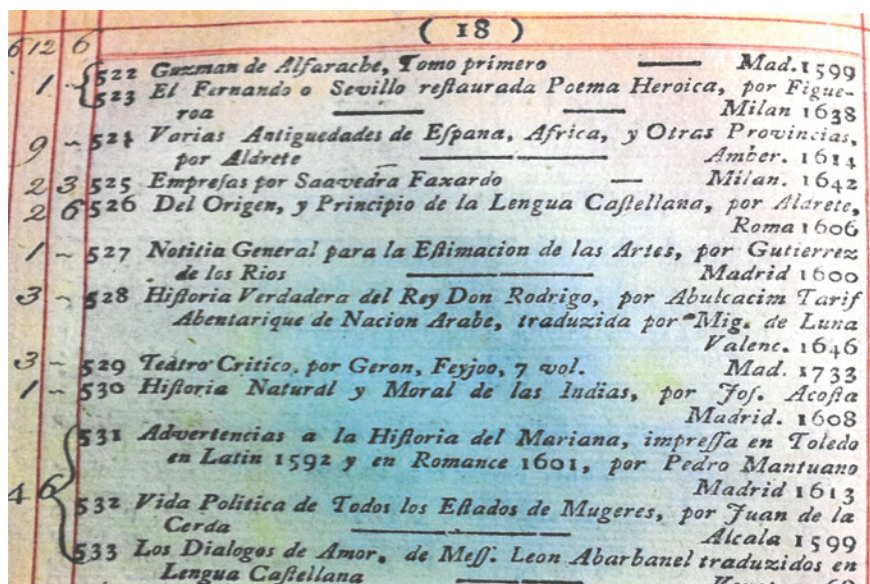 ( 18 )
6 12 6
522 Guzman de Alfarache, Tomo primero —— Mad. 1599
1 523 El Fernando o Sevillo reſtaurada Poema Heroica, por Figue-
roa —— —— Milan 1638
9 ~ 524 Varias Antiguedades de Eſpana, Africa, y Otras Provincias,
por Aldrete —— Amber. 1614
2 3 525 Empreſas por Saavedra Faxardo — Milan. 1642
2 6 526 Del Origen, y Principio de la Lengua Caſtellana, por Aldrete,
Roma 1606
1 ~ 527 Notitia General para la Eſtimacion de las Artes, por Gutierrez
de los Rios —— Madrid 1600
3 ~ 528 Hiſtoria Verdadera del Rey Don Rodrigo, por Abulcacim Tarif
Abentarique de Nacion Arabe, traduzida por Mig. de Luna
Valenc. 1646
3 ~ 529 Teatro Critico, por Geron, Feyjoo, 7 vol. Mad. 1733
1 ~ 530 Hiſtoria Natural y Moral de las Indias, por Joſ. Acoſta
Madrid. 1608
531 Advertencias a la Hiſtoria del Mariana, impreſſa en Toledo
en Latin 1592 y en Romance 1601, por Pedro Mantuano
Madrid 1613
4 6 532 Vida Politica de Todos los Eſtados de Mugeres, por Juan de la
Cerda —— Alcala 1599
533 Los Dialogos de Amor, de Meſſ. Leon Abarbanel traduzidos en
Lengua Caſtellana ——